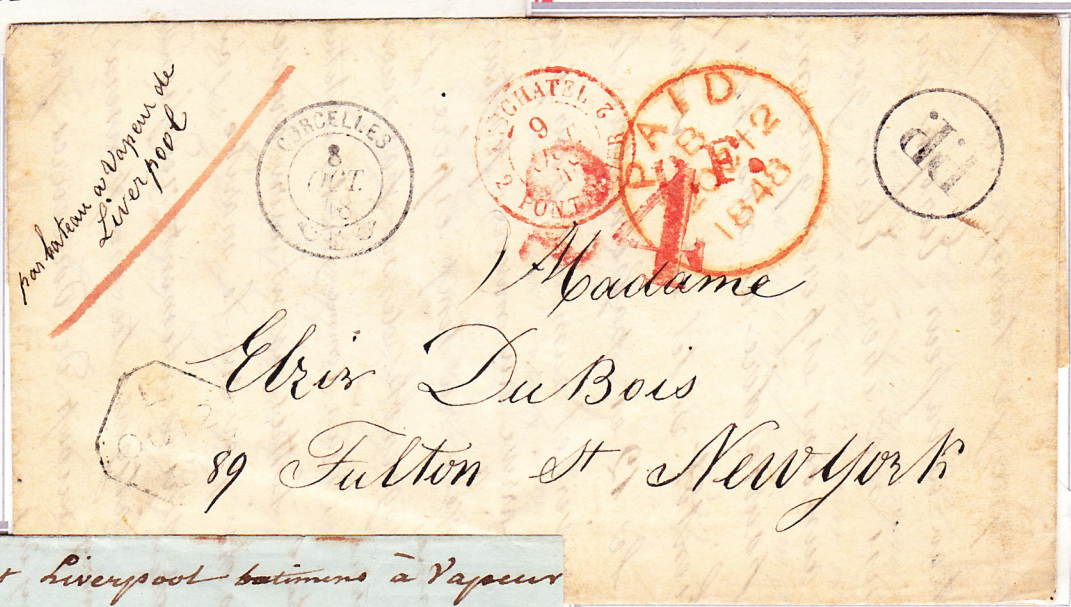 par bateau a Vapeur de
Liverpool
CORCELLES
8
OCT.
NEUCHATEL 2
9
2 PONTARLIER
PAID
8 OC 12
1848
P.F.
P.P.
Madame
Elzir DuBois
89 Fulton St New York
Liverpool batimens à Vapeur